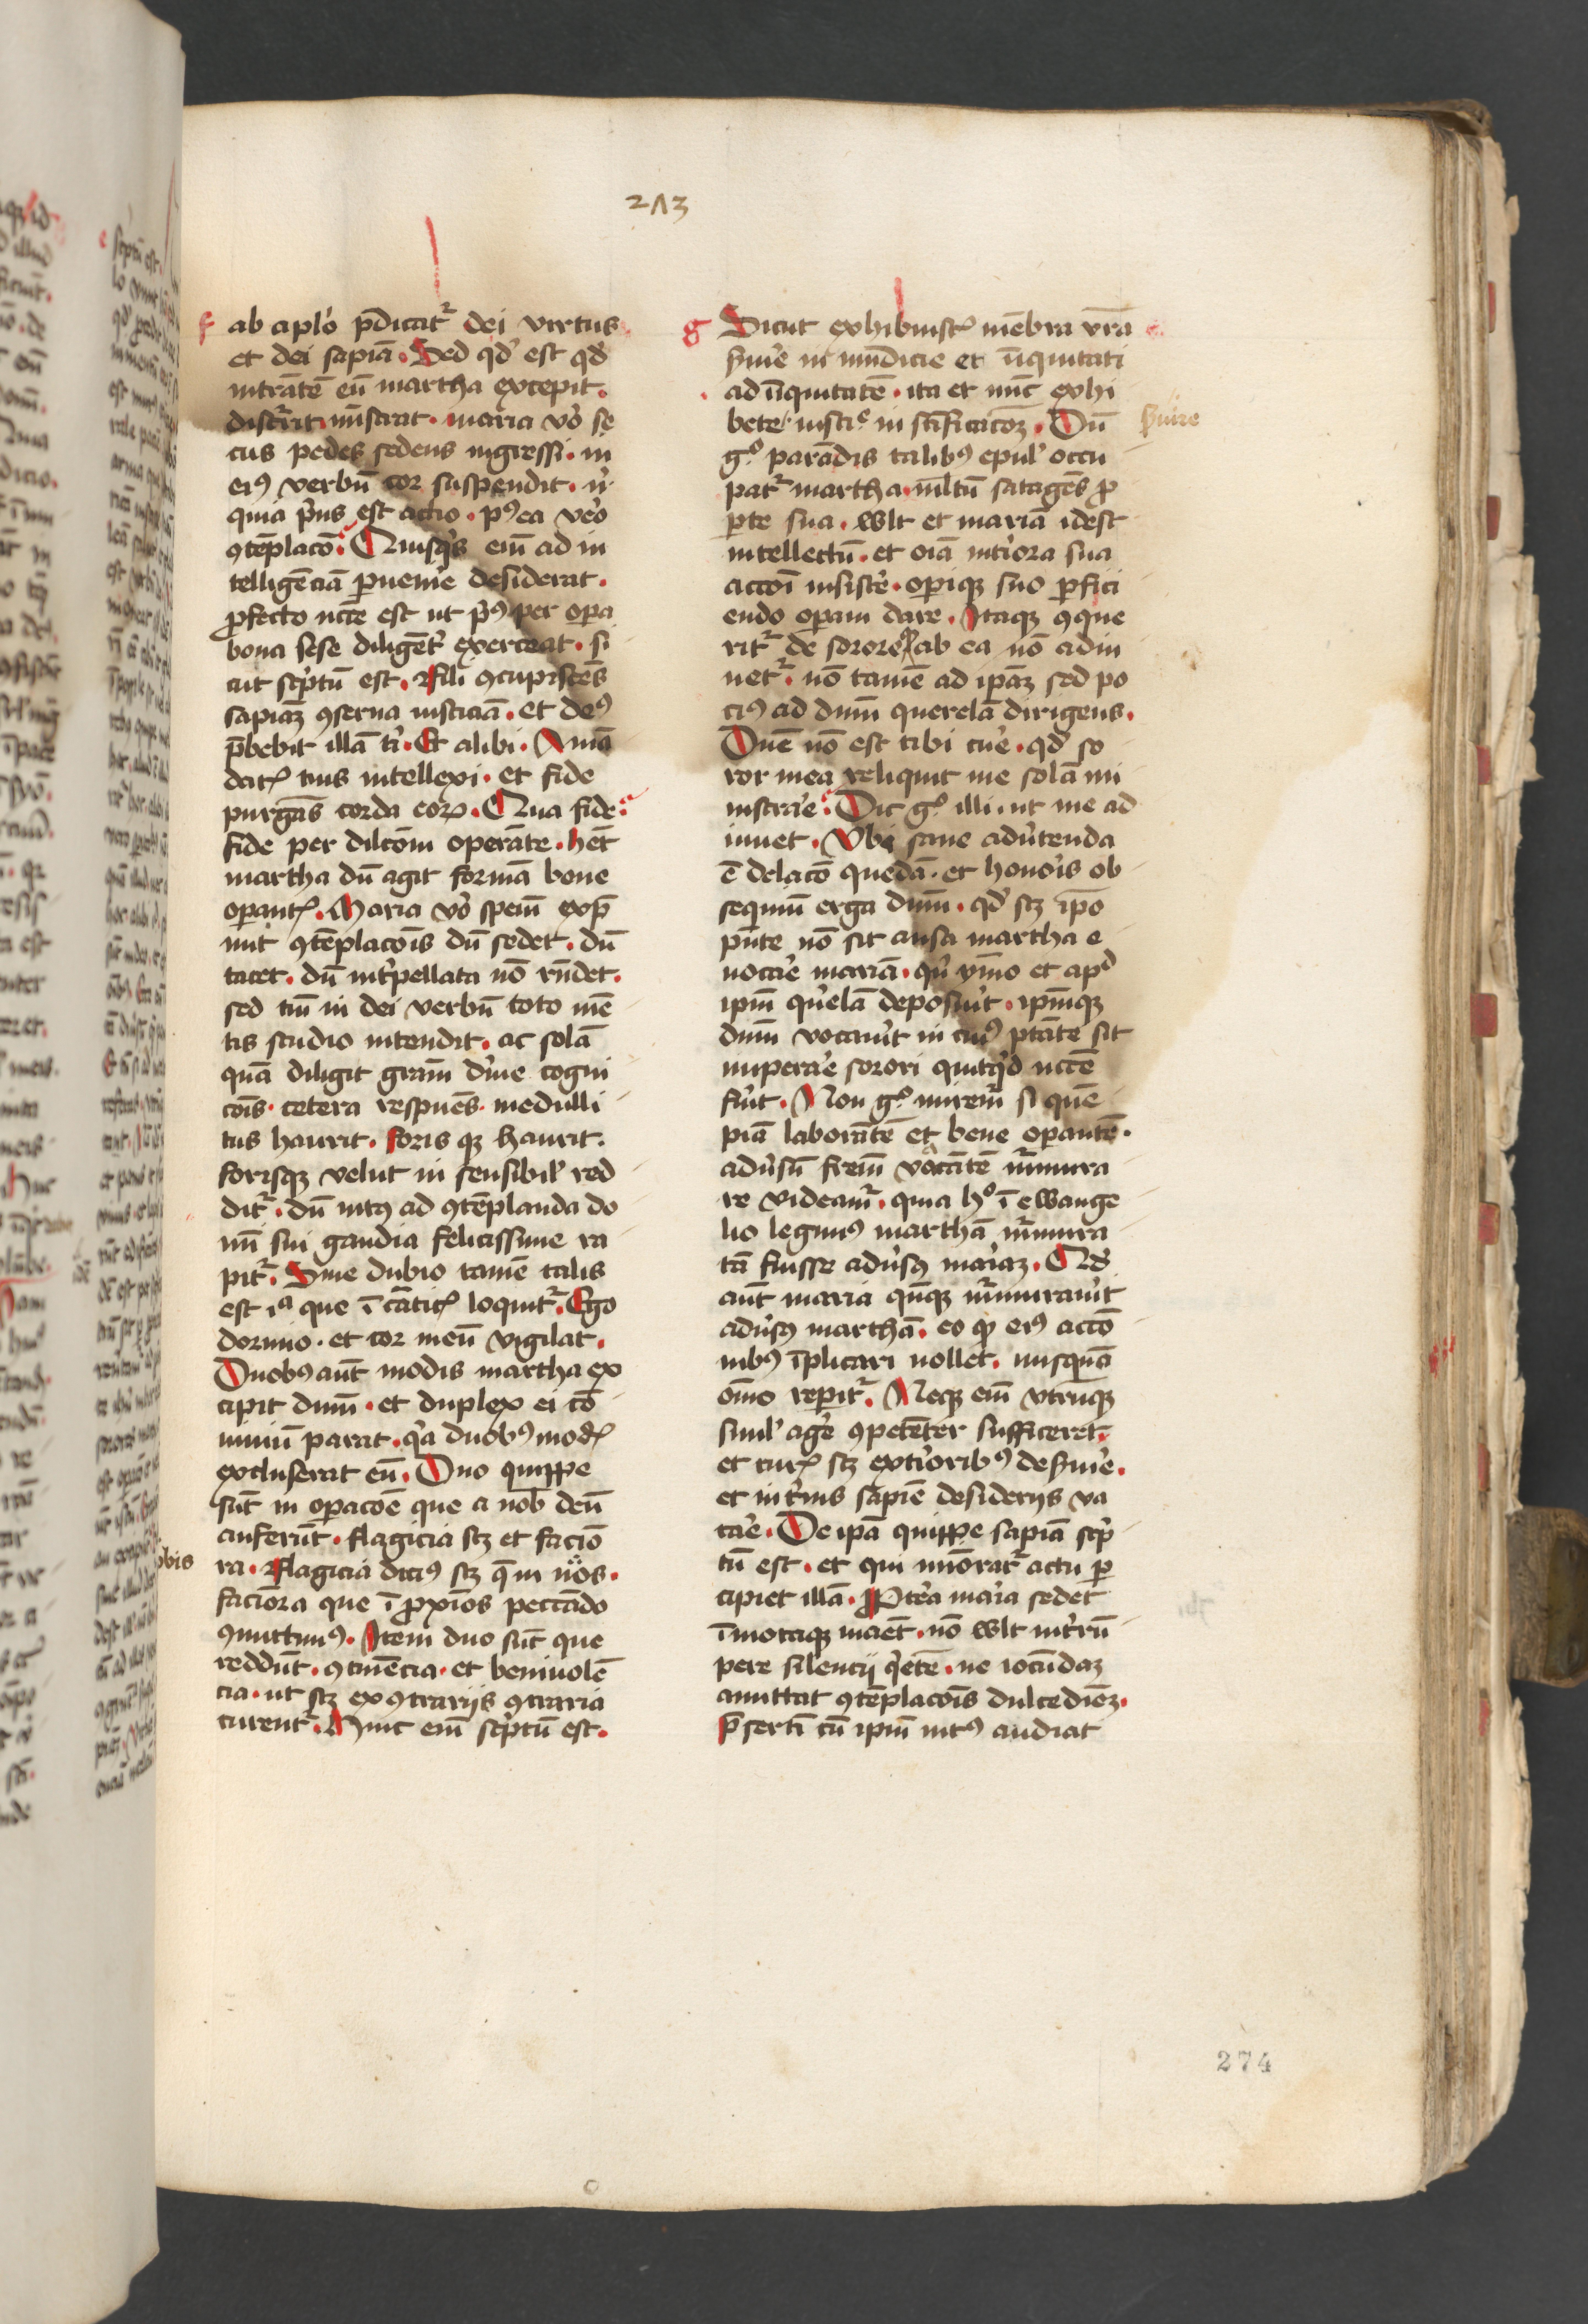 273
f ab aplo p̄dicatr̄ dei virtus
et dei sapiā. Sed qd̛ est qd̛
intrātē eū martha excepit.
discr̄rit miſtrat. maria v̊o se
cus pedes sedens ingressi. in
eiꝰ verbū cor suspendit. n̄
quia p̛us est actio. pꝰea vero
ꝯtēplacō. Quisq̛s eni̅ ad in
telligēciā ꝑueni̛e desiderat.
ꝓfecto ncc̄e est ut p̛ꝰ per oꝑa
bona sese diligēt̛ exerceat. si
cut sc̛ptū est. Fili ꝯcupiscēs
sapiaꝫ ꝯserua iusticiā. et deꝰ
p̄bebit illā ti̛. Et alibi. A mā
datꝭ tuis intellexi. et fide
purgās corda eoꝝ. Qua fide:
fide per dilcōm operāte. hēt
martha dū agit formā bone
oꝑantꝭ. Maria v̊o speni̅ exp̄
mit ꝯtēplacōis dū sedet. dū
tacet. dū int̛pellata nō rn̄det.
sed tm̄ in dei verbū toto mē
tis studio intendit. ac solā
quā diligit gram̄ di̛ne cogni
cōis. cetera respuēs. medulli
tus haurit. foris qꝫ haurit.
forisqꝫ velut in sensibil̛ red
ditr̄. dū intꝰ ad ꝯtēplanda do
mi̅ sui gaudia felicissime ra
pitr̄. Sine dubio tamē talis
est iᵃ que ī cāticꝭ loquitr̄. Ego
dormio. et cor meū vigilat.
Duobꝰ aūt modis martha ex
cipit dnm̄. et duplex ei cō
uiuiū parat. q̛a duobꝰ modꝭ
excluserat eū. Duo quippe
sūt in oꝑacōe que a nob̄ deū
auferūt. flagicia scꝫ et faciō
ra. Flagicia diciꝰ scꝫ q̄ in nōs.
obis
faciōra que ī ꝓxīos peccādo
ꝯmittimꝰ. Item duo sūt que
reddūt. ꝯtinēcia. et beniuolē
cia. ut scꝫ ex ꝯtrarijs ꝯtraria
curentr̄. Hinc eni̅ sc̛ptū est.
g Sicut exhibuistꝭ mēbra vr̄a
s̛uire in mūdicie et īiquitati
ad īiquitatē. ita et nūc exhi
bete iusticꝭ in sc̄ificacōꝫ. Dū
s̛uire
gͦ parādis talibꝰ epul̛ occu
patr̄ martha. m̄ltū satagēs ꝓ
ꝑte sua. wlt et mariā idest
intellectū. et oīa int̛iora sua
accōi insist̛e. oꝑiqꝫ suo ꝑfici
endo oꝑam dare. Itaqꝫ ꝯque
ritr̄ de sorore ꝙ ab ea nō adiu
uetr̄. nō tamē ad ipaꝫ sed po
ciꝰ ad dnm̄ querelā dirigens.
Dnē nō est tibi cure. qd̛ so
ror mea reliquit me solā mi
nistrare. Dic gͦ illi. ut me ad
iuuet. Vbi sane adưtenda
ē delacō quedā. et honoris ob
sequiū erga dnm̄. qd̛ scꝫ ipo
p̄nte nō sit ausa martha e
uocare mariā. qn̛ ymo et apᵈ
ipm̄ q̛relā deposuit. ipm̄qꝫ
dnm̄ vocaưit in cuiꝰ ptāte sit
imperare sorori quitq̛d ncc̄e
fưit. Non gͦ miremr̄ si quē
piā laborātē et bene oꝑantē.
adưsū frem̄ vacātē mr̄mura
re videamr̄. quia hͦ ī ewange
lio legimꝰ marthā mr̄mura
tā fuisse adưsꝰ mariaꝫ. Qd̛
aūt maria qn̄qꝫ mr̄muraưit
adưsꝰ marthā. eo ꝙ eiꝰ accō
nibꝰ īplicari nollet. nusquā
om̄o reꝑitr̄. Neqꝫ eni̅ vtrūqꝫ
simul̛ agere ꝯpetēter sufficeret.
et curꝭ scꝫ ext̛ioribꝰ des̛uire.
et int̛nis sapie desiderijs va
care. De ipā quippe sapiā sc̛p
tū est. et qui mi̅oratr̄ actu ꝑ
cipiet illā. Pꝓt̛ea maria sedet
īmotaqꝫ manet. nō wlt int̛rū
pere silencij q̛etē. ne iocūdaꝫ
amittat ꝯtēplacōis dulcediēꝫ.
p̄serti̅ cū ipm̄ intꝰ audiat
274